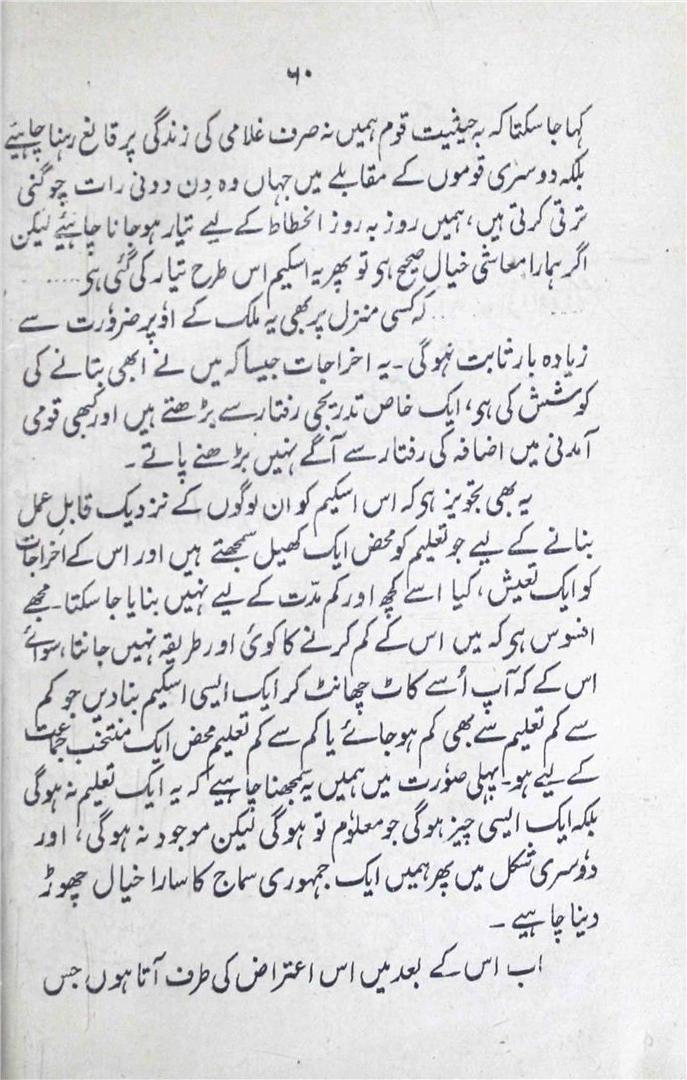 ۶۰
کہا جا سکتا کہ بہ حیثیت قوم ہمیں نہ صرف غلامی کی زندگی پر قانع رہنا چاہیے
بلکہ دوسری قوموں کے مقابلے میں جہاں وہ دن دونی رات چوگنی
ترقی کرتی ہیں، ہمیں روز بہ روز انحطاط کے لیے تیار ہو جانا چاہیئے لیکن
اگر ہمارا معاشی خیال صحیح ہی تو پھر یہ اسکیم اس طرح تیار کی گئی ہی .....
کہ کسی منزل پر بھی یہ ملک کے اوپر ضرورت سے
زیادہ بار ثابت نہوگی ۔ یہ اخراجات جیسا کہ میں نے ابھی بتانے کی
کوشش کی ہی، ایک خاص تدریجی رفتار سے بڑھتے ہیں اور کبھی قومی
آمدنی میں اضافہ کی رفتار سے آگے نہیں بڑھنے پاتے ۔
یہ بھی تجویز ہی کہ اس اسکیم کو ان لوگوں کے نزدیک قابل عمل
بنانے کے لیے جو تعلیم کو محض ایک کھیل سمجھتے ہیں اور اس کے اخراجات
کو ایک تعیش، کیا اسے کچھ اور کم مدّت کے لیے نہیں بنایا جا سکتا ۔ مجھے
افسوس ہی کہ میں اس کے کم کرنے کا کوئی اور طریقہ نہیں جانتا، سوائے
اس کے کہ آپ اُسے کاٹ چھانٹ کر ایک ایسی اسکیم بنا دیں جو کم
سے کم تعلیم سے بھی کم ہو جائے یا کم سے کم تعلیم محض ایک منتخب جماعت
کے لیے ہو ۔ پہلی صورت میں ہمیں یہ سمجھنا چاہیے کہ یہ ایک تعلیم نہ ہوگی
بلکہ ایک ایسی چیز ہوگی جو معلوم تو ہوگی لیکن موجود نہ ہوگی، اور
دوسری شکل میں پھر ہمیں ایک جمہوری سماج کا سارا خیال چھوڑ
دینا چاہیے ۔
اب اس کے بعد میں اس اعتراض کی طرف آتا ہوں جس